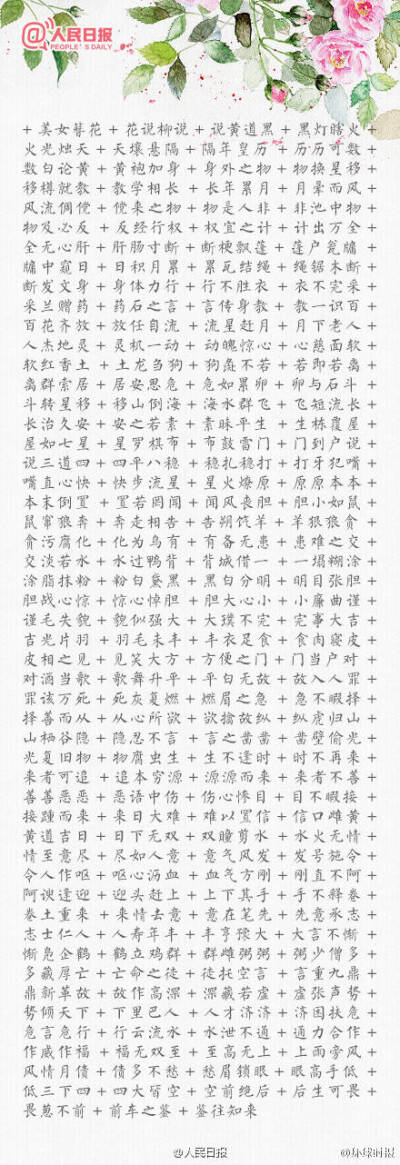 @人民日报
PEOPLE'S DAILY
+ 美女簪花 + 花说柳说 + 说黄道黑 + 黑灯瞎火 +
火光烛天 + 天壤悬隔 + 隔年皇历 + 历历可数 +
数白论黄 + 黄袍加身 + 身外之物 + 物换星移 +
移樽就教 + 教学相长 + 长年累月 + 月晕而风 +
风流倜傥 + 傥来之物 + 物是人非 + 非池中物 +
物极必反 + 反经行权 + 权宜之计 + 计出万全 +
全无心肝 + 肝肠寸断 + 断梗飘蓬 + 蓬户瓮牖 +
牖中窥日 + 日积月累 + 累瓦结绳 + 绳锯木断 +
断发文身 + 身体力行 + 行不胜衣 + 衣不完采 +
采兰赠药 + 药石之言 + 言传身教 + 教一识百 +
百花齐放 + 放任自流 + 流星赶月 + 月下老人 +
人杰地灵 + 灵机一动 + 动魄惊心 + 心慈面软 +
软红香土 + 土龙刍狗 + 狗彘不若 + 若即若离 +
离群索居 + 居安思危 + 危如累卵 + 卵与石斗 +
斗转星移 + 移山倒海 + 海水群飞 + 飞短流长 +
长治久安 + 安之若素 + 素昧平生 + 生栋覆屋 +
屋如七星 + 星罗棋布 + 布鼓雷门 + 门到户说 +
说三道四 + 四平八稳 + 稳扎稳打 + 打牙犯嘴 +
嘴直心快 + 快步流星 + 星火燎原 + 原原本本 +
本末倒置 + 置若罔闻 + 闻风丧胆 + 胆小如鼠 +
鼠窜狼奔 + 奔走相告 + 告朔饩羊 + 羊狠狼贪 +
贪污腐化 + 化为乌有 + 有备无患 + 患难之交 +
交淡若水 + 水过鸭背 + 背城借一 + 一塌糊涂 +
涂脂抹粉 + 粉白黛黑 + 黑白分明 + 明目张胆 +
胆战心惊 + 惊心悼胆 + 胆大心小 + 小廉曲谨 +
谨毛失貌 + 貌似强大 + 大璞不完 + 完事大吉 +
吉光片羽 + 羽毛未丰 + 丰衣足食 + 食肉寝皮 +
皮相之见 + 见笑大方 + 方便之门 + 门当户对 +
对酒当歌 + 歌舞升平 + 平白无故 + 故入人罪 +
罪该万死 + 死灰复燃 + 燃眉之急 + 急不暇择 +
择善而从 + 从心所欲 + 欲擒故纵 + 纵虎归山 +
山栖谷隐 + 隐忍不言 + 言之凿凿 + 凿壁偷光 +
光复旧物 + 物腐虫生 + 生不逢时 + 时不再来 +
来者可追 + 追本穷源 + 源源而来 + 来者不善 +
善善恶恶 + 恶语中伤 + 伤心惨目 + 目不暇接 +
接踵而来 + 来日大难 + 难以置信 + 信口雌黄 +
黄道吉日 + 日下无双 + 双瞳剪水 + 水火无情 +
情至意尽 + 尽如人意 + 意气风发 + 发号施令 +
令人作呕 + 呕心沥血 + 血气方刚 + 刚直不阿 +
阿谀逢迎 + 迎头赶上 + 上下其手 + 手不释卷 +
卷土重来 + 来情去意 + 意在笔先 + 先意承志 +
志士仁人 + 人寿年丰 + 丰亨豫大 + 大言不惭 +
惭凫企鹤 + 鹤立鸡群 + 群雌粥粥 + 粥少僧多 +
多藏厚亡 + 亡命之徒 + 徒托空言 + 言重九鼎 +
鼎新革故 + 故作高深 + 深藏若虚 + 虚张声势 +
势倾天下 + 下里巴人 + 人才济济 + 济困扶危 +
危言危行 + 行云流水 + 水泄不通 + 通力合作 +
作威作福 + 福无双至 + 至高无上 + 上雨旁风 +
风情月债 + 债多不愁 + 愁眉锁眼 + 眼高手低 +
低三下四 + 四大皆空 + 空前绝后 + 后生可畏 +
畏葸不前 + 前车之鉴 + 鉴往知来
@人民日报
@环球时报